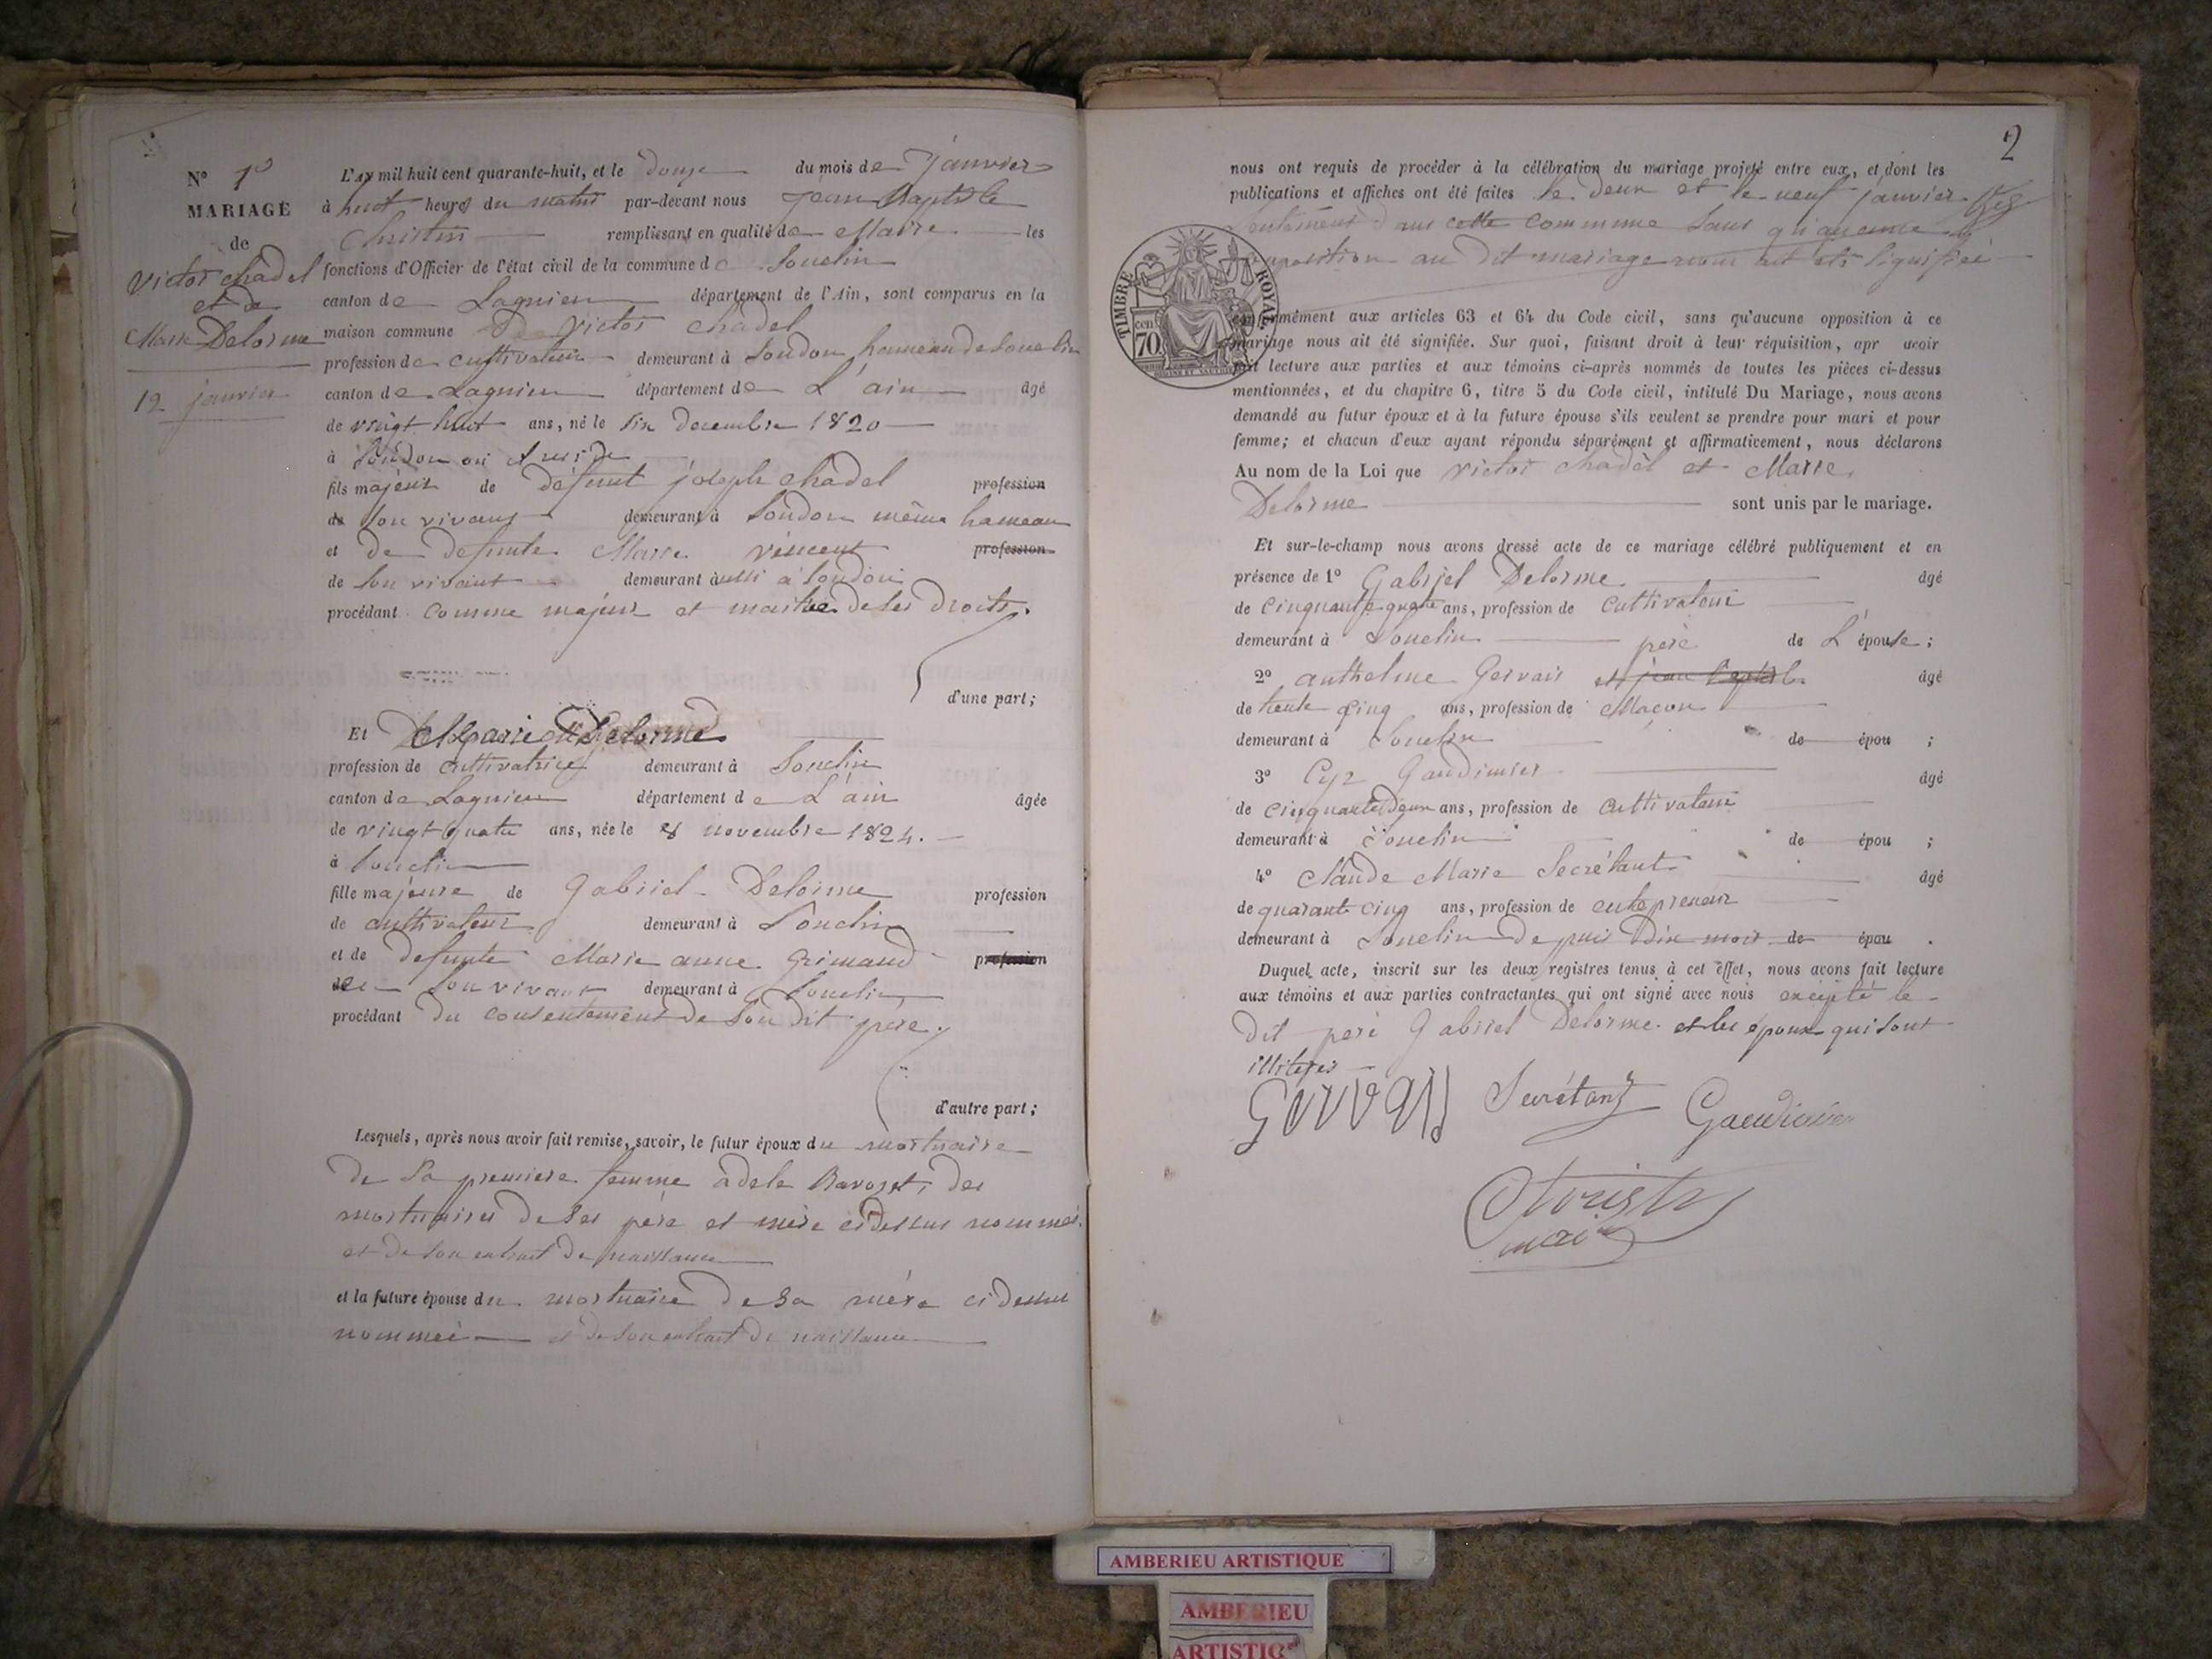 N° 1°
MARIAGE
de
Victor chadel
et de
Marie Delorme
12 janvier
L'AN mil huit cent quarante-huit, et le douze du mois de janvier
à huit heures du matin par-devant nous jean Baptiste
Christin remplissant en qualité de Maire les
fonctions d'Officier de l'état civil de la commune de Souclin
canton de Lagnieu département de l'Ain, sont comparus en la
maison commune Victor chadel
profession de cultivateur demeurant à Soudon hameau de Souclin
canton de Lagnieu département de L'ain âgé
de vingt huit ans, né le six decembre 1820
à Soudon où il reside
fils majeur de défunt joseph chadel profession
de son vivant demeurant à Soudon même hameau
et de defunte Marie vincent profession
de son vivant demeurant aussi à Soudon
procédant comme majeur et maitre de ses droits.
d'une part;
Et Marie Delorme
profession de cultivatrice demeurant à Souclin
canton de Lagnieu département de L'ain âgée
de vingt quatre ans, née le 8 novembre 1824.
à Souclin
fille majeure de Gabriel Delorme profession
de cultivateur demeurant à Souclin
et de defunte Marie anne Grimaud profession
de son vivant demeurant à Souclin
procédant du consentement de son dit père.
d'autre part;
Lesquels, après nous avoir fait remise, savoir, le futur époux du mortuaire
de sa premiere femme adele Ravozet, des
mortuaires de ses père et mère ci dessus nommés
et de son extrait de naissance
et la future épouse du mortuaire de sa mère ci dessus
nommée et de son extrait de naissance
2
nous ont requis de procéder à la célébration du mariage projeté entre eux, et dont les
publications et affiches ont été faites le deux et le neuf janvier
dans cette commune sans qu'aucune
opposition au dit mariage nous ait été signifiée
TIMBRE ROYAL
cen. 70
conformément aux articles 63 et 64 du Code civil, sans qu'aucune opposition à ce
mariage nous ait été signifiée. Sur quoi, faisant droit à leur réquisition, apr avoir
fait lecture aux parties et aux témoins ci-après nommés de toutes les pièces ci-dessus
mentionnées, et du chapitre 6, titre 5 du Code civil, intitulé Du Mariage, nous avons
demandé au futur époux et à la future épouse s'ils veulent se prendre pour mari et pour
femme; et chacun d'eux ayant répondu séparément et affirmativement, nous déclarons
Au nom de la Loi que victor chadel et Marie
Delorme sont unis par le mariage.
Et sur-le-champ nous avons dressé acte de ce mariage célébré publiquement et en
présence de 1° Gabriel Delorme âgé
de cinquante quatre ans, profession de cultivateur
demeurant à Souclin père de L'épouse;
2° anthelme Gervais et jean baptiste âgé
de trente cinq ans, profession de Maçon
demeurant à Souclin de épou ;
3° Cyr Gaudimier âgé
de cinquante deux ans, profession de cultivateur
demeurant à Souclin de épou ;
4° Claude Marie Secrétant âgé
de quarante cinq ans, profession de entrepreneur
demeurant à Souclin depuis dix mois de épou .
Duquel acte, inscrit sur les deux registres tenus à cet effet, nous avons fait lecture
aux témoins et aux parties contractantes qui ont signé avec nous excepté le
dit père Gabriel Delorme et les époux qui sont
illiterés
Gervais Secrétant Gaudimier
Christin
maire
AMBERIEU ARTISTIQUE
AMBERIEU
ARTISTIQ